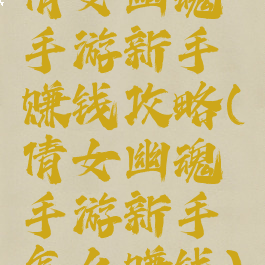 倩女幽魂
手游新手
赚钱攻略(
倩女幽魂
手游新手
怎么赚钱)